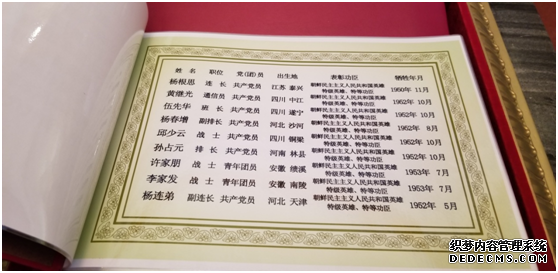 姓名 职位 党(团)员 出生地 表彰功臣 牺牲年月
杨根思 连长 共产党员 江苏 泰兴 朝鲜民主主义人民共和国英雄 特级英雄、特等功臣 1950年 11月
黄继光 通信员 共产党员 四川 中江 朝鲜民主主义人民共和国英雄 特级英雄、特等功臣 1952年 10月
伍先华 班长 共产党员 四川 遂宁 朝鲜民主主义人民共和国英雄 特级英雄、特等功臣 1952年 10月
杨春增 副排长 共产党员 河北 沙河 朝鲜民主主义人民共和国英雄 特级英雄、特等功臣 1952年 8月
邱少云 战士 共产党员 四川 铜梁 朝鲜民主主义人民共和国英雄 特级英雄、特等功臣 1952年 10月
孙占元 排长 共产党员 河南 林县 朝鲜民主主义人民共和国英雄 特级英雄、特等功臣 1952年 10月
许家朋 战士 青年团员 安徽 绩溪 朝鲜民主主义人民共和国英雄 特级英雄、特等功臣 1953年 7月
李家发 战士 青年团员 安徽 南陵 朝鲜民主主义人民共和国英雄 特级英雄、特等功臣 1953年 7月
杨连弟 副连长 共产党员 河北 天津 朝鲜民主主义人民共和国英雄 特级英雄、特等功臣 1952年 5月
织梦内容管理系统
DEDECMS.COM